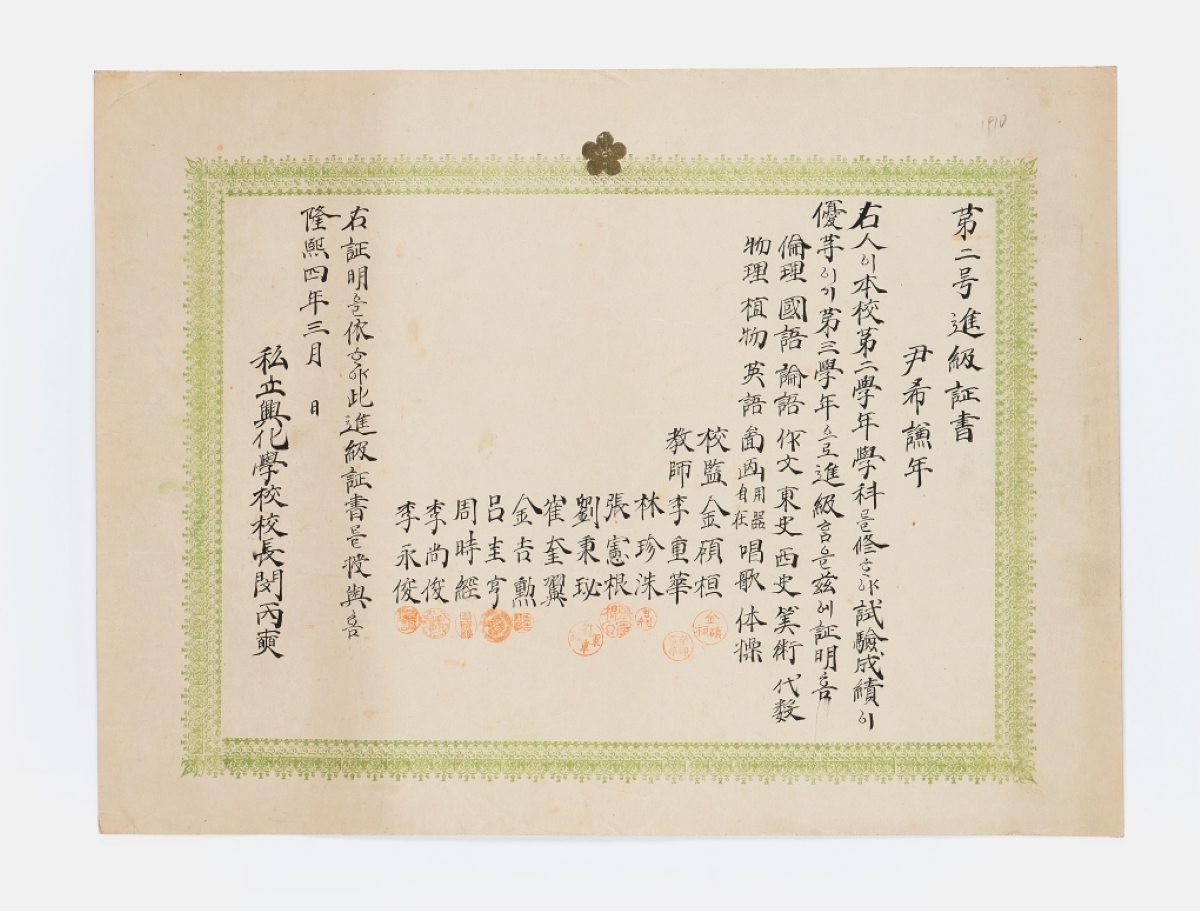 第二号進級証書
尹希謙年
右人이本校第二學年學科를修하야試驗成績이
優等이기第三學年으로進級함을玆에証明홈
倫理 國語 論語 作文 東史 西史 算術 代数
物理 植物 英語 圖画 用器 自在 唱歌 体操
校監 金碩桓
教師 李重華
林珍洙
張憲根
劉秉珌
崔奎翼
金吉勲
呂圭亨
周時經
李尚俊
李永俊
右証明을依하야此進級証書를授與홈
隆熙四年三月 日
私立興化學校校長閔丙奭
1910